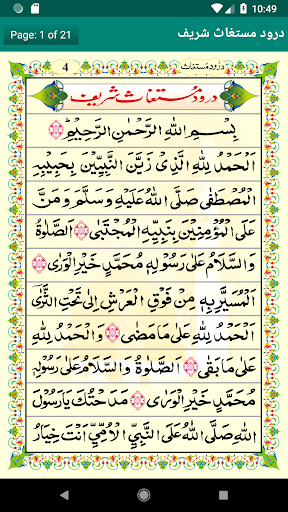 10:49
Page: 1 of 21
درود مستغاث شریف
4
درود مستغاث
درود مُستغاث شریف
بِسْمِ اللهِ الرَّحْمٰنِ الرَّحِيْمِ
اَلْحَمْدُ لِلّٰهِ الَّذِىْ زَيَّنَ النَّبِيِّيْنَ بِحَبِيْبِهِ
الْمُصْطَفٰى صَلَّى اللهُ عَلَيْهِ وَسَلَّمَ وَمَنَّ
عَلَى الْمُؤْمِنِيْنَ بِنَبِيِّهِ الْمُجْتَبٰى اَلصَّلٰوةُ
وَالسَّلَامُ عَلٰى رَسُوْلِهٖ مُحَمَّدٍ خَيْرِ الْوَرٰى
الْمُسَيَّرِ بِهٖ مِنْ فَوْقِ الْعَرْشِ اِلٰى تَحْتِ الثَّرٰى
اَلْحَمْدُ لِلّٰهِ عَلٰى مَا مَضٰى وَالْحَمْدُ لِلّٰهِ
عَلٰى مَا بَقٰى اَلصَّلٰوةُ وَالسَّلَامُ عَلٰى رَسُوْلِهٖ
مُحَمَّدٍ خَيْرِ الْوَرٰى مَدَحْتُكَ يَا رَسُوْلَ
اللهِ صَلَّى اللهُ عَلَى النَّبِيِّ الْاُمِّيِّ اَنْتَ خِيَارُ